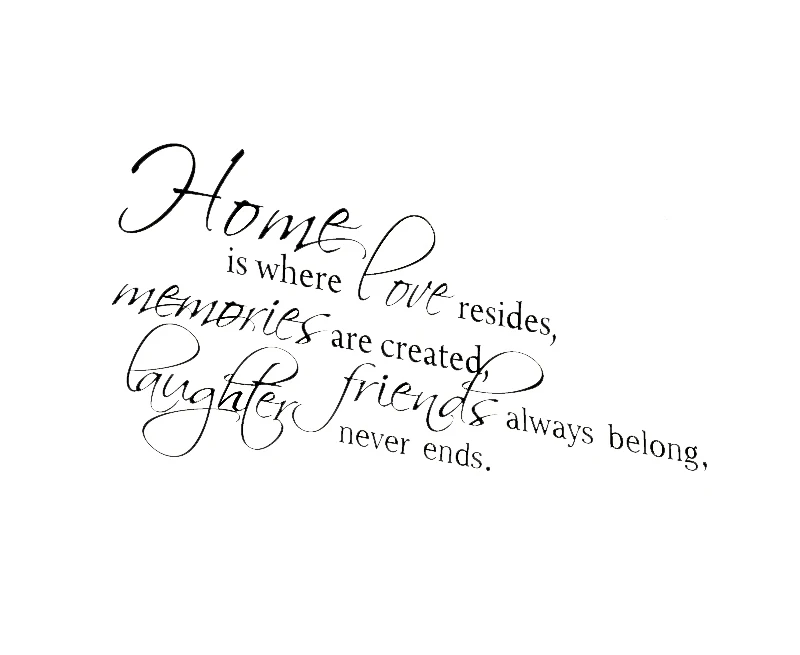 Home
is where love resides,
memories are created,
friends always belong,
laughter never ends.